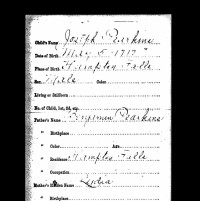 Child's Name, Joseph Pearkins
Date of Birth, May 5 - 1717
Place of Birth, Hampton Falls
Sex, Male Color,
Living or Stillborn
No. of Child, 1st, 2d, etc.
Father's Name, Benjamin Pearkins
" Birthplace
" Color, Age,
" Residence Hampton Falls
" Occupation
Mother's Maiden Name Lydia
" Birthplace